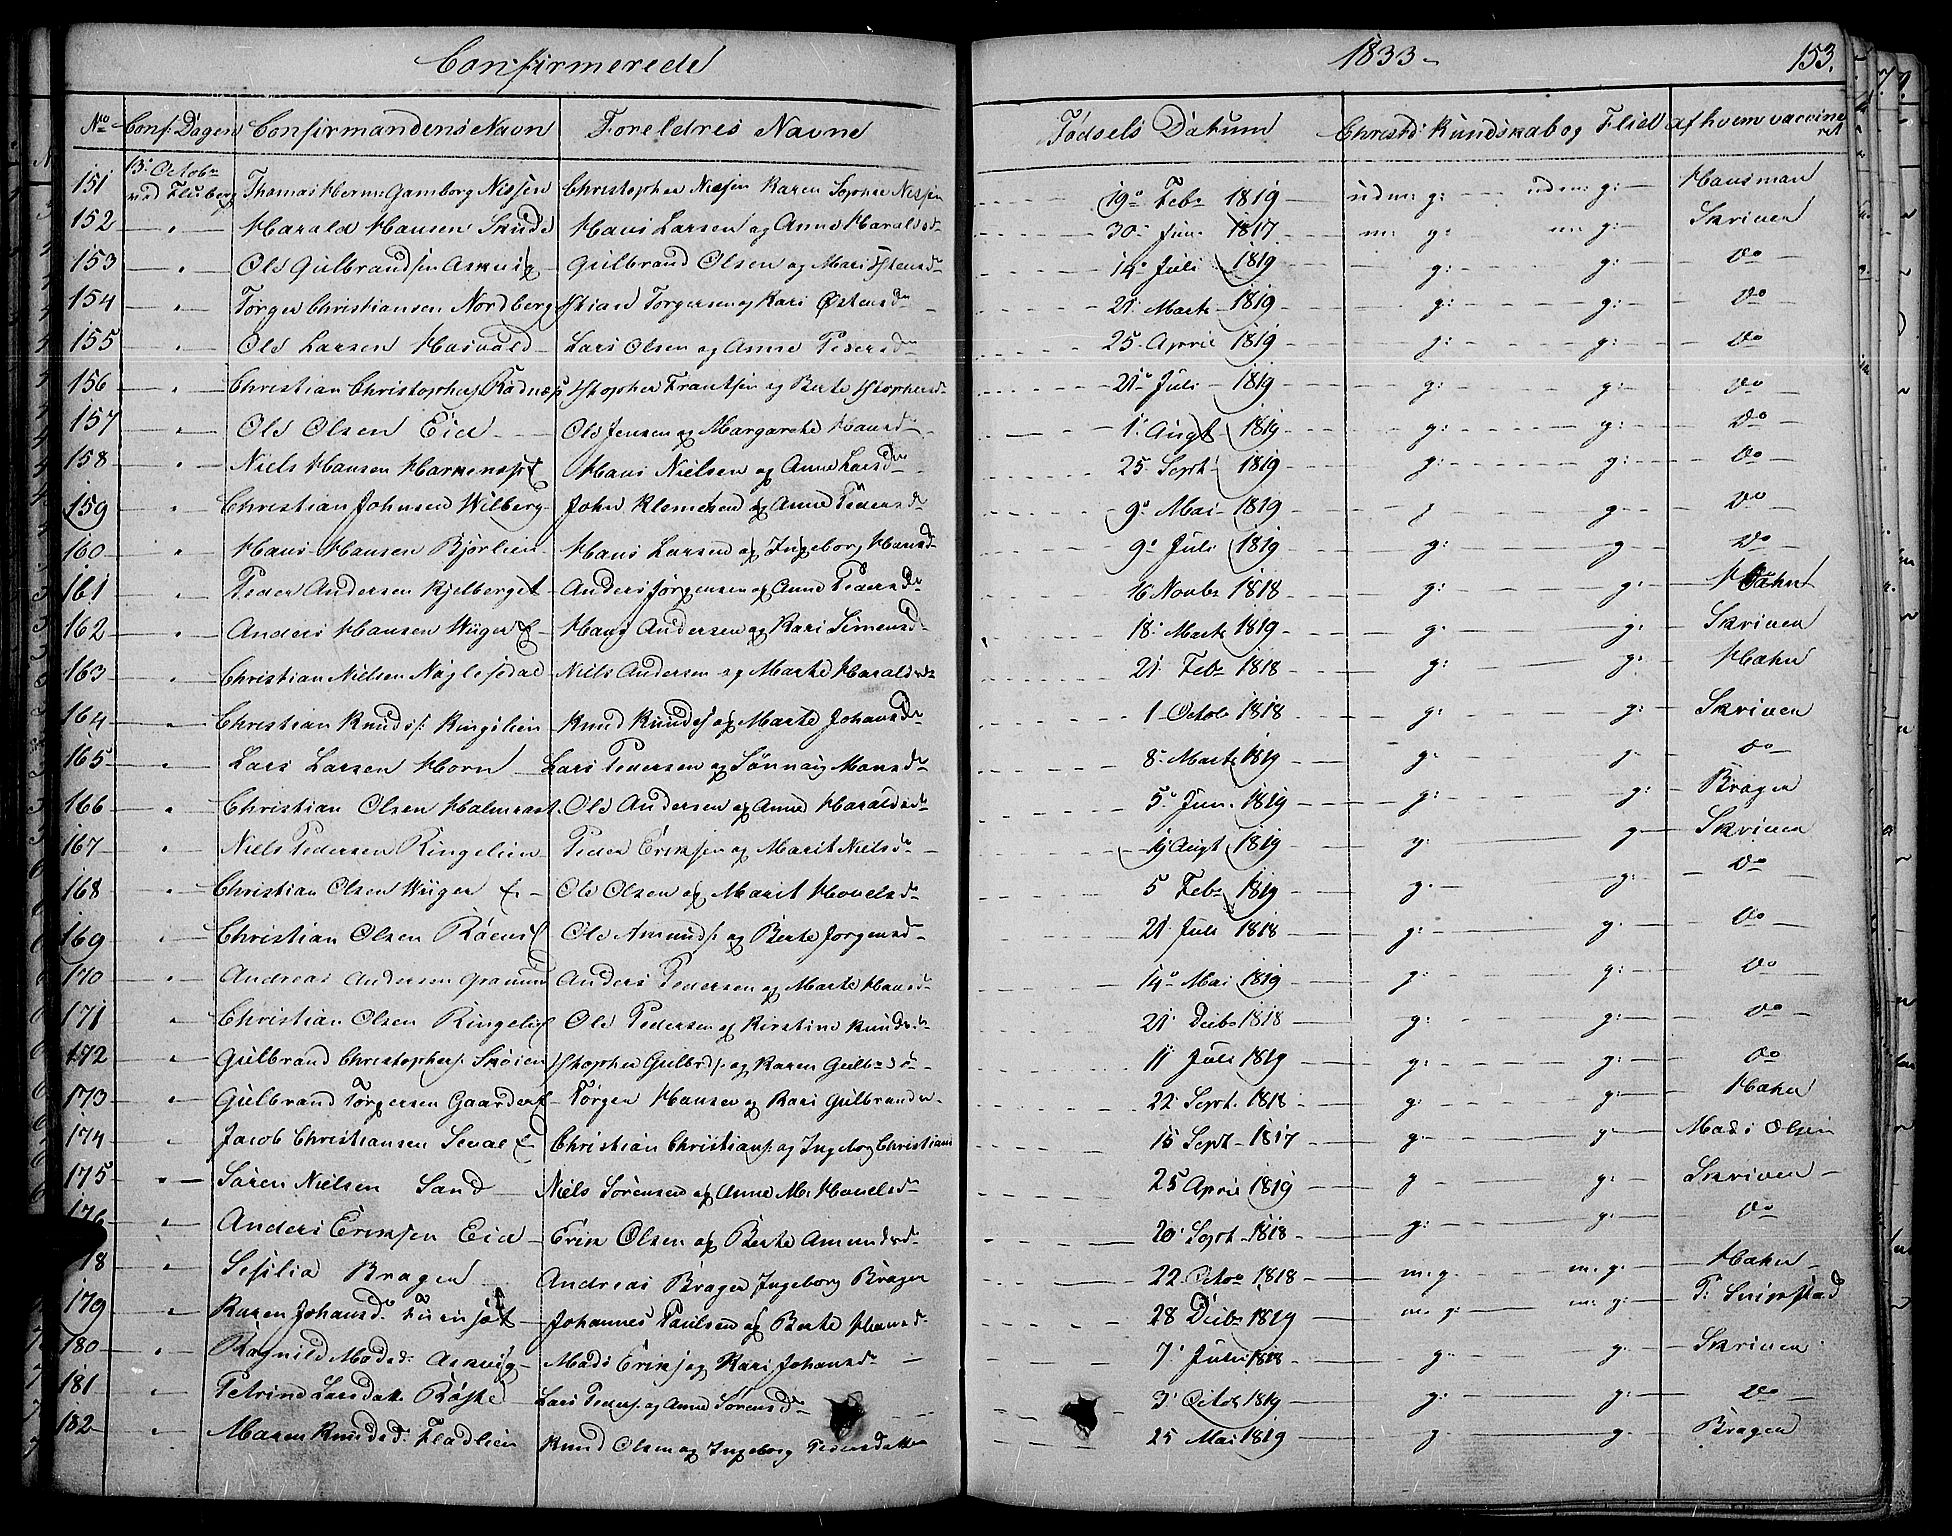 Confirmerede 1833 153.
No Conf: Dagen Confirmandens Navn Foreldres Navne Födsels Datum Christd: Kundskab og Fliid af hvem vaccineret
13. Octobr
151 ved Fluberg Thomas Herm: Gamborg Nissen Christopher Nissen Karen Sophie Nissen 19o Febr 1819 udm: g: udm: g: Hausman
152 " Harald Hansen Skude Hans Larsen og Anne Haraldsd. 30 Jun. 1817 m: g: m: g: Skriven
153 " Ole Gulbrandsen Askvig Gulbrand Olsen og Mari 14o Juli 1819 g: g: do
154 " Torger Christiansen Nordberg Torgersen og Kari Östensdr 21. Marts 1819 g: g: do
155 " Ole Larsen Hasvold Lars Olsen og Anne Pedersdr 25. April 1819 g: g: do
156 " Christian Christophers. Rödnæs Frantsen og Berte 21o Juli 1819 g: g: do
157 " Ole Olsen Eid Ole Jensen og Margarethe Hansdr 1. Augt 1819 g: g: do
158 " Niels Hansen Hans Nielsen og Anne Larsdr 25. Sept. 1819 g: g: do
159 " Christian Johnsen Wilberg John Klemetsen og Anne Pedersdr 9o Mai 1819 g g do
160 " Hans Hansen Björlien Hans Larsen og Ingeborg Hansd. 9o Juli 1819 g: g do
161 " Peder Andersen Kjelberget Anders Jörgensen og Anne Pedersdr 16 Novbr 1818 g: g: Hahn
162 " Anders Hansen Hans Andersen og Kari Simensd. 18. Marts 1819 g: g: Skriven
163 " Christian Nielsen Niels Andersen og Marte Haraldsdr 21. Febr 1818 g: g: Hahn
164 " Christian Knuds: Ringelien Knud Knuds: og Marte Johansdr 1 Octob 1818 g: g: Skriven
165 " Lars Larsen Horn Lars Pedersen og Sönnaug Hansdr 8. Marts 1819 g: g do
166 " Christian Olsen Halmrast Ole Andersen og Anne Haraldsdr 5o Jun. 1819 g: g: Bragen
167 " Niels Pedersen Ringelien Peder Eriksen og Marit Nielsdr 19 Augt 1819 g: g Skriven
168 " Christian Olsen Ole Olsen og Marit Hovelsdr 5 Febr 1819 g. g: do
169 " Christian Olsen Ole Amunds: og Berte Jorgensd. 21. Juli 1818 g: g: do
170 " Andreas Andersen Anders Pedersen og Marte Hansdr 14o Mai 1819 g: g: do
171 " Christian Olsen Ole Pedersen og Kirstine Knudsdr 21. Decbr 1818 g: g: do
172 " Gulbrand Christophers: Skoien Gulbrds: og Karen 11. Juli 1819 g: g: do
173 " Gulbrand Torgersen Torger Hansen og Kari 22. Sept. 1818 g: g: Hahn
174 " Jacob Christiansen Christian Christians: og Ingeborg Christians 15 Sept 1817 g: g Mads Olsen
175 " Sören Nielsen Sand Niels Sörensen og Anne M: Hovelsdr 25 April 1819 g g: Skriven
176 " Anders Eriksen Eid Erik Olsen og Berte Amundsd. 20. Sept 1818 g: g: do
178 " Sesilia Bragen Andreas Bragen Ingeborg Bragen 22 Octo 1818 m: g. m: g. Hahn
179 " Karen Johansd. Johannes Paulsen og Berte Hansd. 28 Decbr 1819 m: g: m: g: P:
180 " Ragnild Madsd: Askvig Mads Eriks. og Kari Johansdr 7. Juli 1818 g: g: Skriven
181 " Petrine Larsdatt. Röste Lars Peders: og Anne Sörensdr 3. Octob 1819 g: g: do
182 " Maren Knudsd. Fladlien Knud Olsen og Ingeborg Pedersdatter 25 Mai 1819 g: g: Bragen